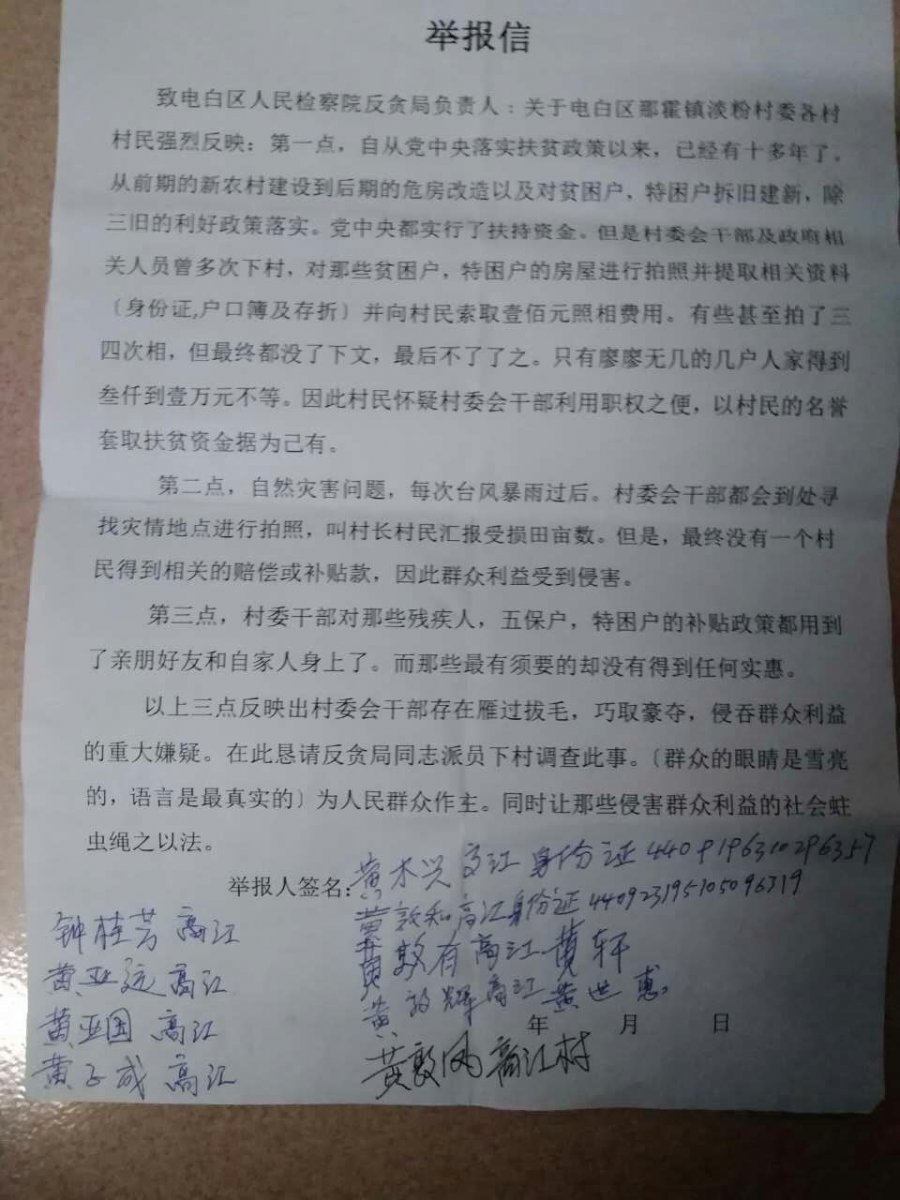 举报信
致电白区人民检察院反贪局负责人：关于电白区那霍镇淡粉村委各村
村民强烈反映：第一点，自从党中央落实扶贫政策以来，已经有十多年了。
从前期的新农村建设到后期的危房改造以及对贫困户，特困户拆旧建新，除
三旧的利好政策落实。党中央都实行了扶持资金。但是村委会干部及政府相
关人员曾多次下村，对那些贫困户，特困户的房屋进行拍照并提取相关资料
〔身份证,户口簿及存折〕并向村民索取壹佰元照相费用。有些甚至拍了三
四次相，但最终都没了下文，最后不了了之。只有廖廖无几的几户人家得到
叁仟到壹万元不等。因此村民怀疑村委会干部利用职权之便，以村民的名誉
套取扶贫资金据为己有。
第二点，自然灾害问题，每次台风暴雨过后。村委会干部都会到处寻
找灾情地点进行拍照，叫村长村民汇报受损田亩数。但是，最终没有一个村
民得到相关的赔偿或补贴款，因此群众利益受到侵害。
第三点，村委干部对那些残疾人，五保户，特困户的补贴政策都用到
了亲朋好友和自家人身上了。而那些最有须要的却没有得到任何实惠。
以上三点反映出村委会干部存在雁过拔毛，巧取豪夺，侵吞群众利益
的重大嫌疑。在此恳请反贪局同志派员下村调查此事。〔群众的眼睛是雪亮
的，语言是最真实的〕为人民群众作主。同时让那些侵害群众利益的社会蛀
虫绳之以法。
举报人签名：黄木兴 高江 身份证
黄敦和高江身份证 440923195105096319
钟桂芳 高江
黄敦有高江 黄轩
黄亚远 高江
黄敦辉高江 黄世惠
黄亚国 高江
年 月 日
黄子成 高江
黄敦凤 高江村